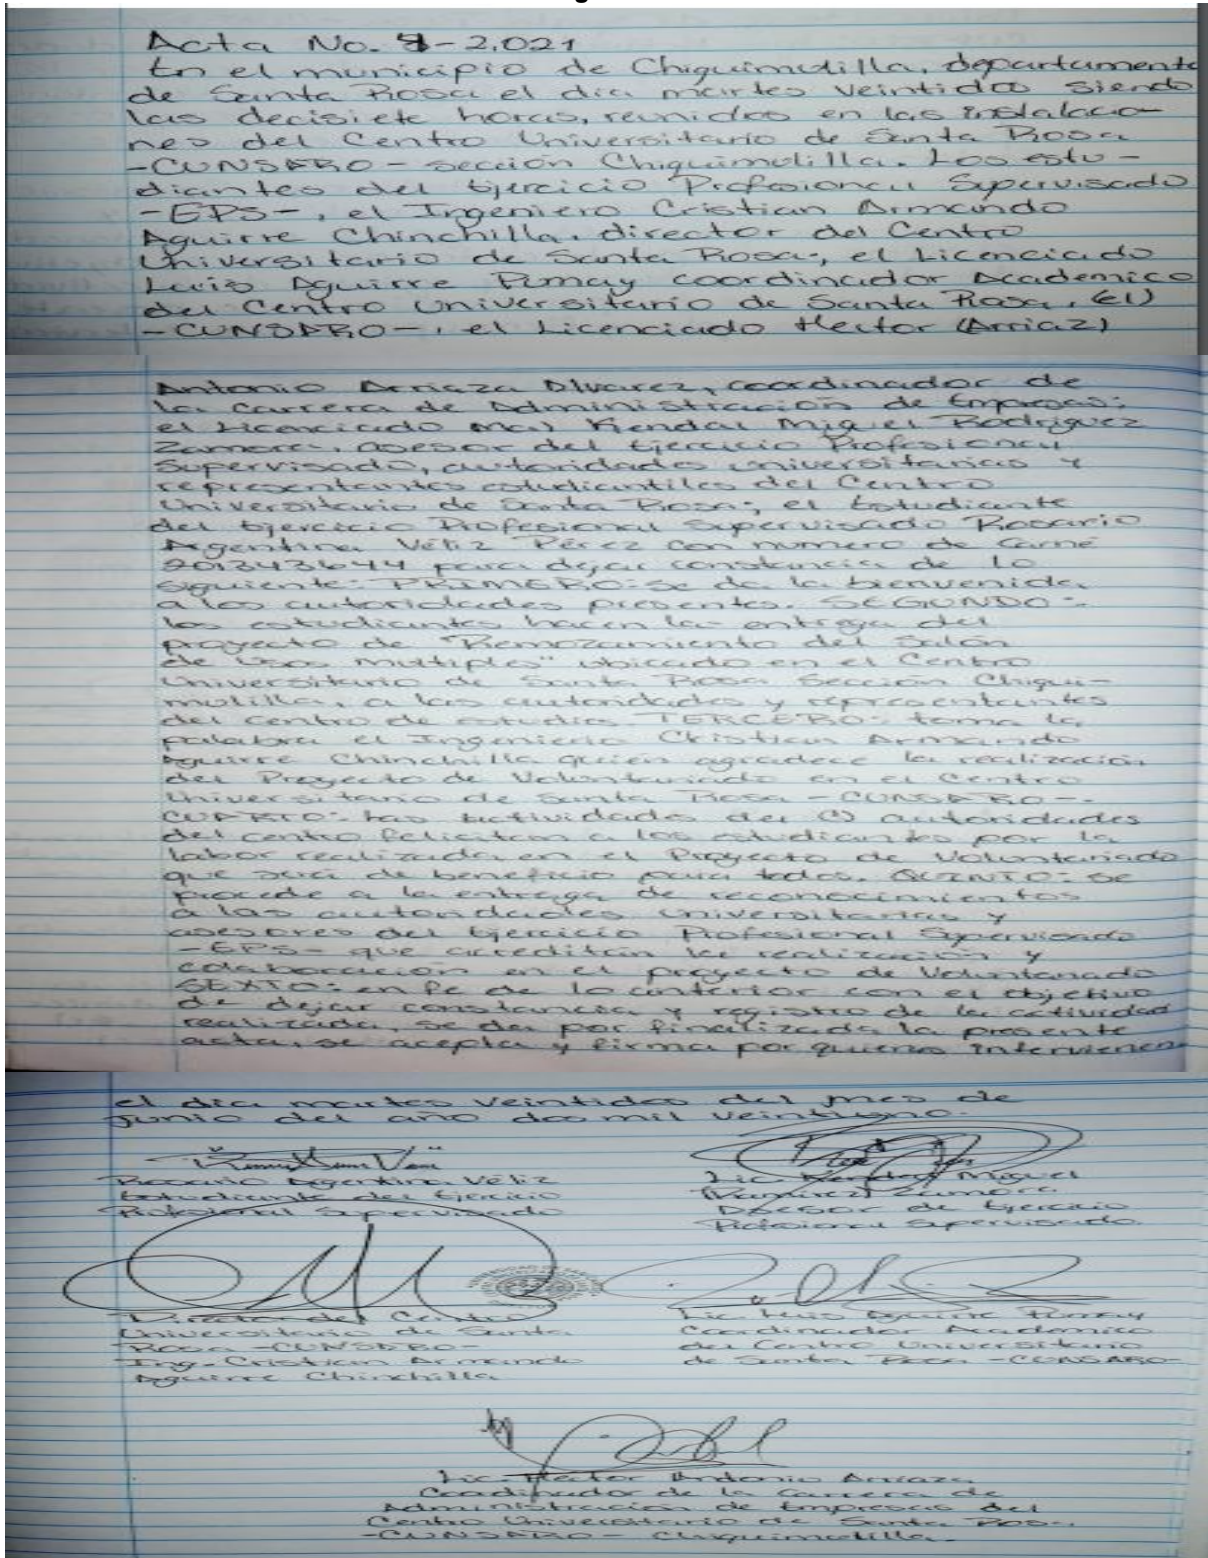 Acta No. 9-2,021
En el municipio de Chiquimulilla, departamento
de Santa Rosa el dia martes veintidos siendo
las decisiete horas, reunidos en las instalacio-
nes del Centro Universitario de Santa Rosa
-CUNSARO- sección Chiquimulilla. Los estu-
diantes del Ejercicio Profesional Supervisado
-EPS-, el Ingeniero Cristian Armando
Aguirre Chinchilla, director del Centro
Universitario de Santa Rosa, el Licenciado
Luis Aguirre Pumay coordinador Academico
del Centro Universitario de Santa Rosa, (El)
-CUNSARO-, el Licenciado Hector (Arriaz)
Antonio Arriaza Alvarez, coordinador de
la carrera de Administración de Empresas;
el Licenciado Kendal Miguel Rodriguez
Zamora, asesor del Ejercicio Profesional
Supervisado, autoridades universitarias y
representantes estudiantiles del Centro
Universitario de Santa Rosa; el Estudiante
del Ejercicio Profesional Supervisado Rosario
Argentina Véliz Pérez con numero de Carné
201243644 para dejar constancia de lo
siguiente: PRIMERO: se da la bienvenida
a los autoridades presentes. SEGUNDO:
los estudiantes hacen la entrega del
proyecto de "Remozamiento del Salón
de Usos multiples" ubicado en el Centro
Universitario de Santa Rosa Sección Chiqui-
mulilla, a las autoridades y representantes
del centro de estudio TERCERO: toma la
palabra el Ingeniero Cristian Armando
Aguirre Chinchilla quien agradece la realización
del Proyecto de Voluntariado en el Centro
Universitario de Santa Rosa -CUNSARO-.
CUARTO: las actividades del autoridades
del centro felicitan a los estudiantes por la
labor realizada en el Proyecto de Voluntariado
que será de beneficio para todos. QUINTO: se
procede a la entrega de reconocimientos
a las autoridades universitarias y
asesores del Ejercicio Profesional Supervisado
-EPS- que acreditan la realización y
colaboración en el proyecto de Voluntariado
SEXTO: en fe de lo anterior con el objetivo
de dejar constancia y registro de la actividad
realizada, se da por finalizada la presente
acta, se acepta y firma por quienes intervienen
el dia martes veintidos del mes de
junio del año dos mil veintiuno.
Rosario Argentina Véliz
Estudiante del Ejercicio
Profesional Supervisado
Lic. Kendal Miguel
(Ramirez) Zamora
Asesor de Ejercicio
Profesional Supervisado
Director del Centro
Universitario de Santa
Rosa -CUNSARO-
Ing. Cristian Armando
Aguirre Chinchilla
Lic Luis Aguirre Pumay
Coordinador Academico
del Centro Universitario
de Santa Rosa -CUNSARO-
Lic. Hector Antonio Arriaza
Coordinador de la Carrera de
Administración de Empresas del
Centro Universitario de Santa Rosa
-CUNSARO- Chiquimulilla.